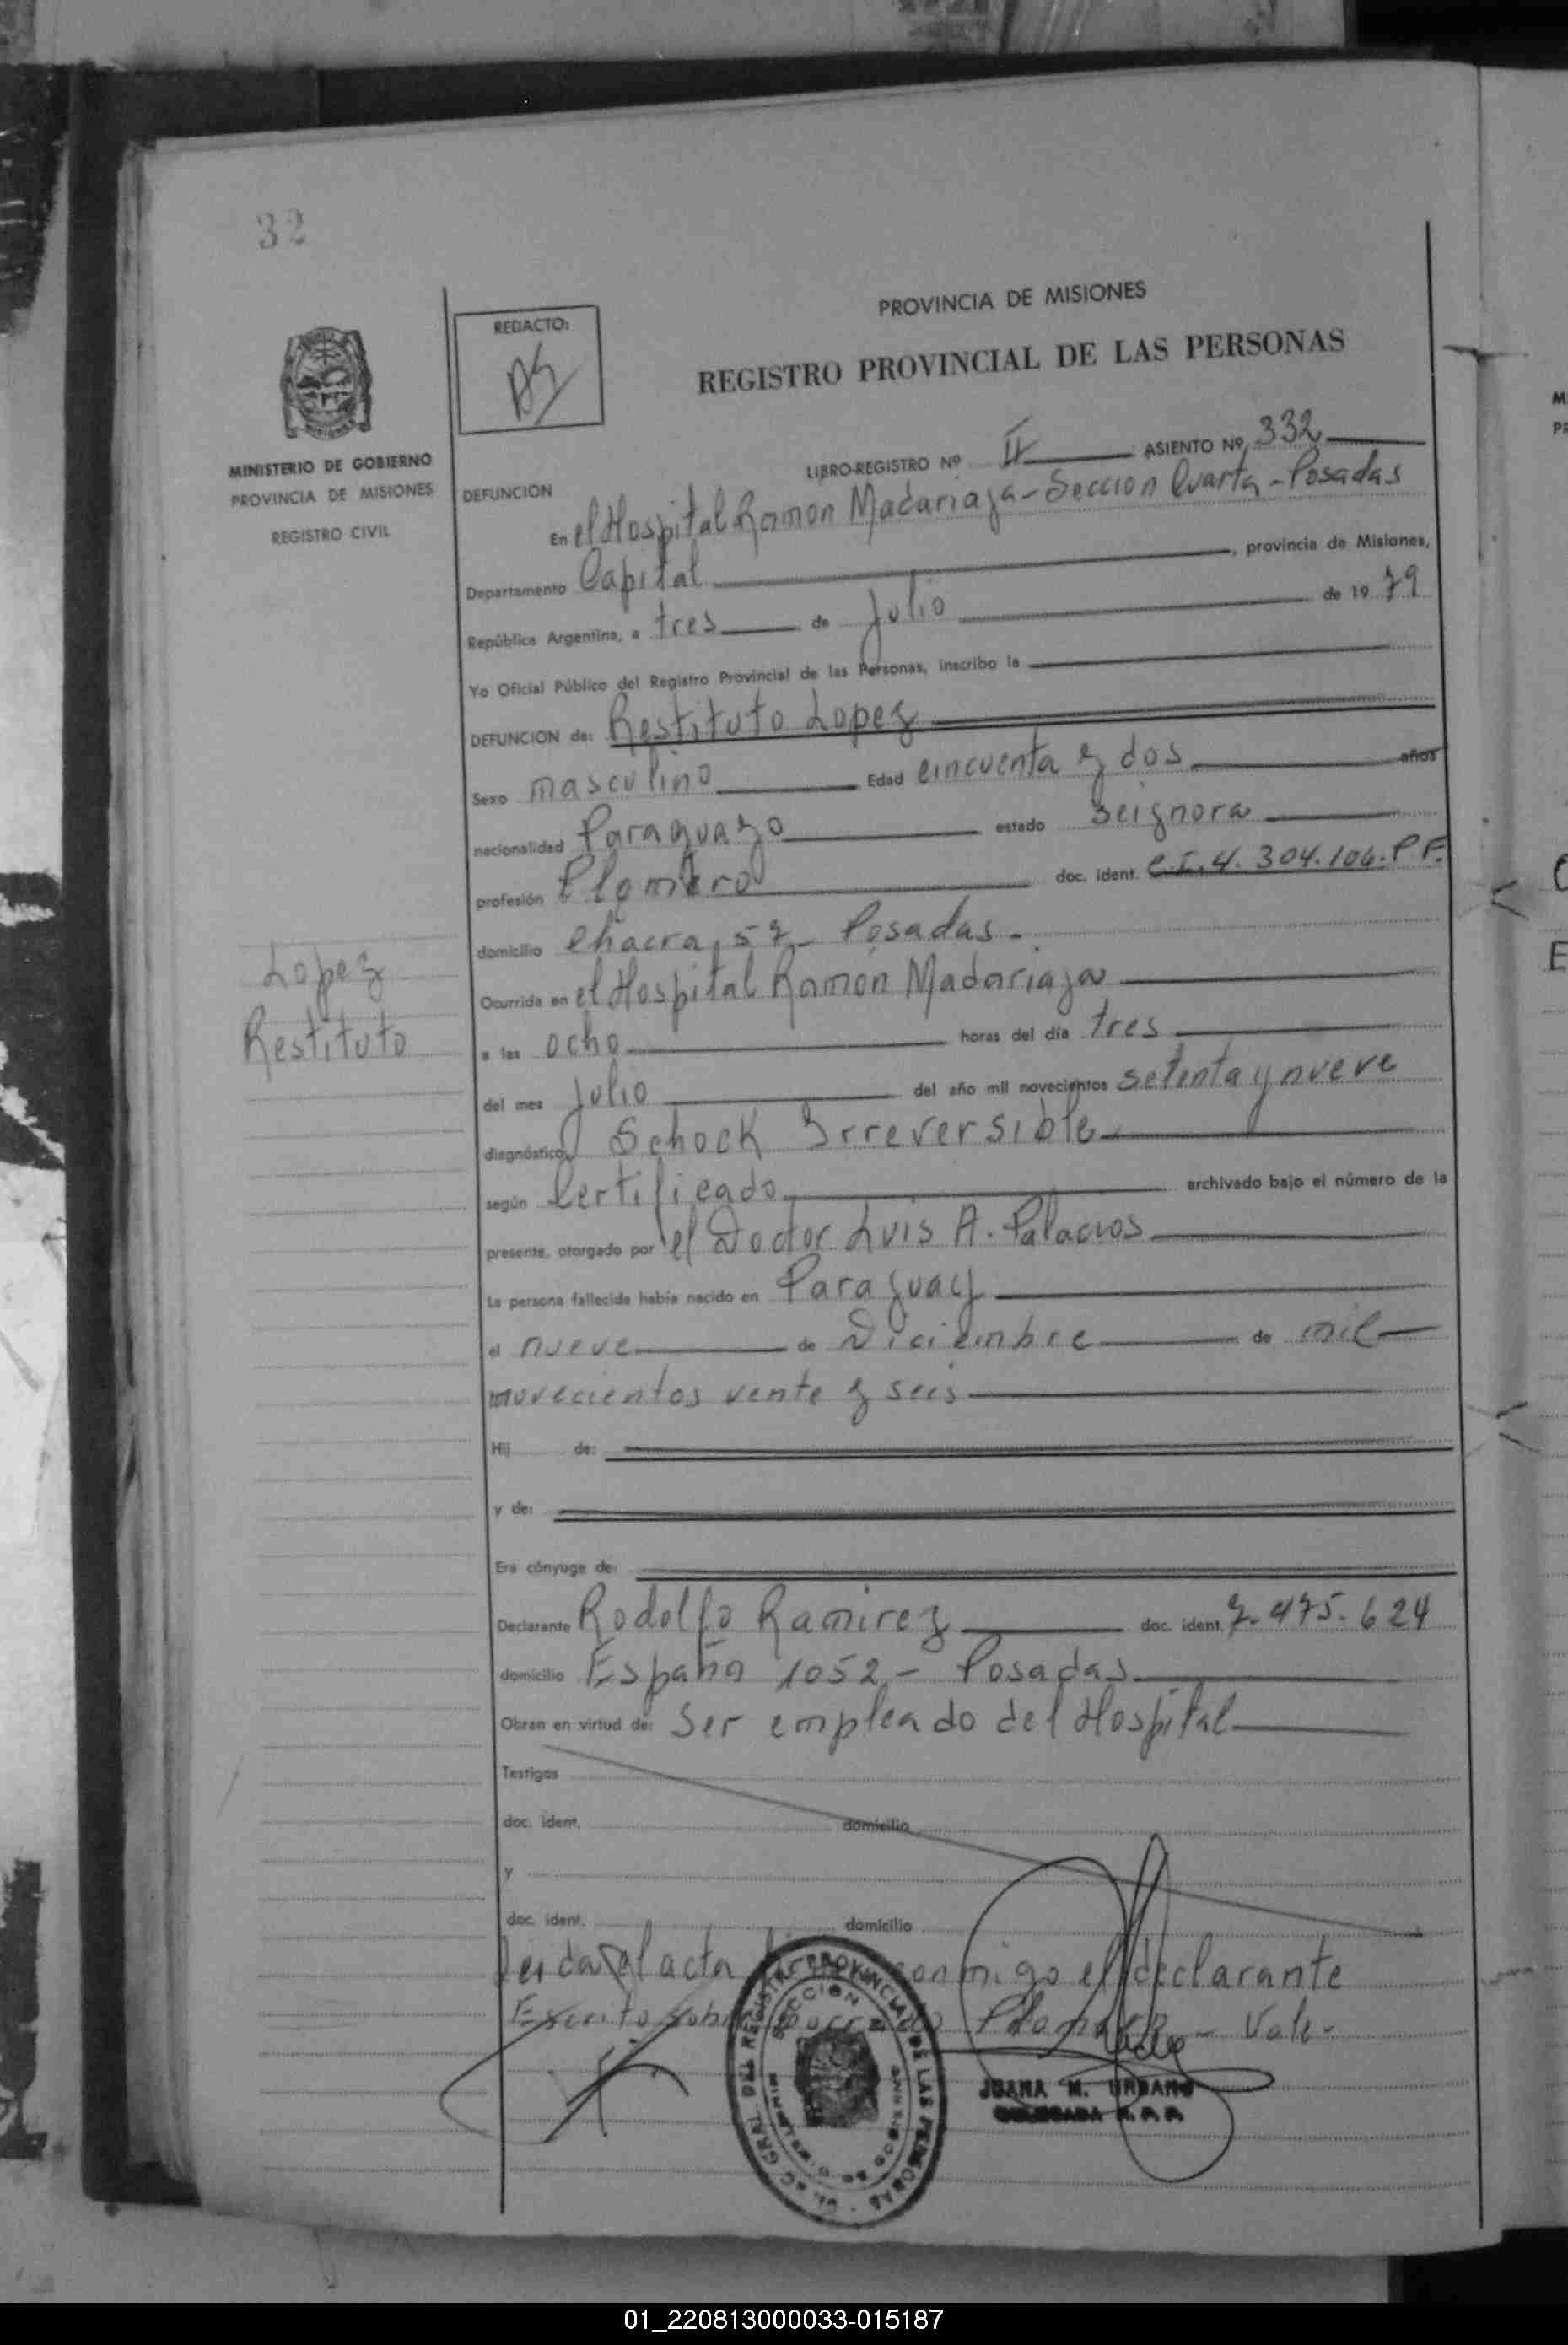 32
PROVINCIA DE MISIONES
REGISTRO PROVINCIAL DE LAS PERSONAS
REDACTO:
MINISTERIO DE GOBIERNO
PROVINCIA DE MISIONES
REGISTRO CIVIL
LIBRO-REGISTRO Nº II ASIENTO Nº 332
DEFUNCION
En el Hospital Ramon Madariaga - Seccion Cuarta - Posadas
Departamento Capital, provincia de Misiones,
República Argentina, a tres de Julio de 19 79
Yo Oficial Público del Registro Provincial de las Personas, inscribo la
DEFUNCION de: Restituto Lopez
Sexo masculino Edad cincuenta y dos años
nacionalidad Paraguayo estado Seignora
profesión Plomero doc. ident. C.I. 4.304.106. P F.
domicilio Chacra, 57 - Posadas -
Lopez
Restituto
Ocurrida en el Hospital Ramón Madariaga
a las ocho horas del día tres
del mes Julio del año mil novecientos setenta y nueve
diagnóstico Schock Irreversible
según Certificado archivado bajo el número de la
presente, otorgado por el Doctor Luis A. Palacios
La persona fallecida había nacido en Paraguay
el nueve de Diciembre de mil
novecientos vente y seis
Hij de:
y de:
Era cónyuge de:
Declarante Rodolfo Ramirez doc. ident. 7.475.624
domicilio España 1052 - Posadas
Obran en virtud de: Ser empleado del Hospital
Testigos
doc. ident. domicilio
y
doc. ident. domicilio
Leida el acta conmigo el declarante
Escrito sobre Plomero - Vale -
JUANA M. URBANO
DELEGADA R. P. P.
01_220813000033-015187